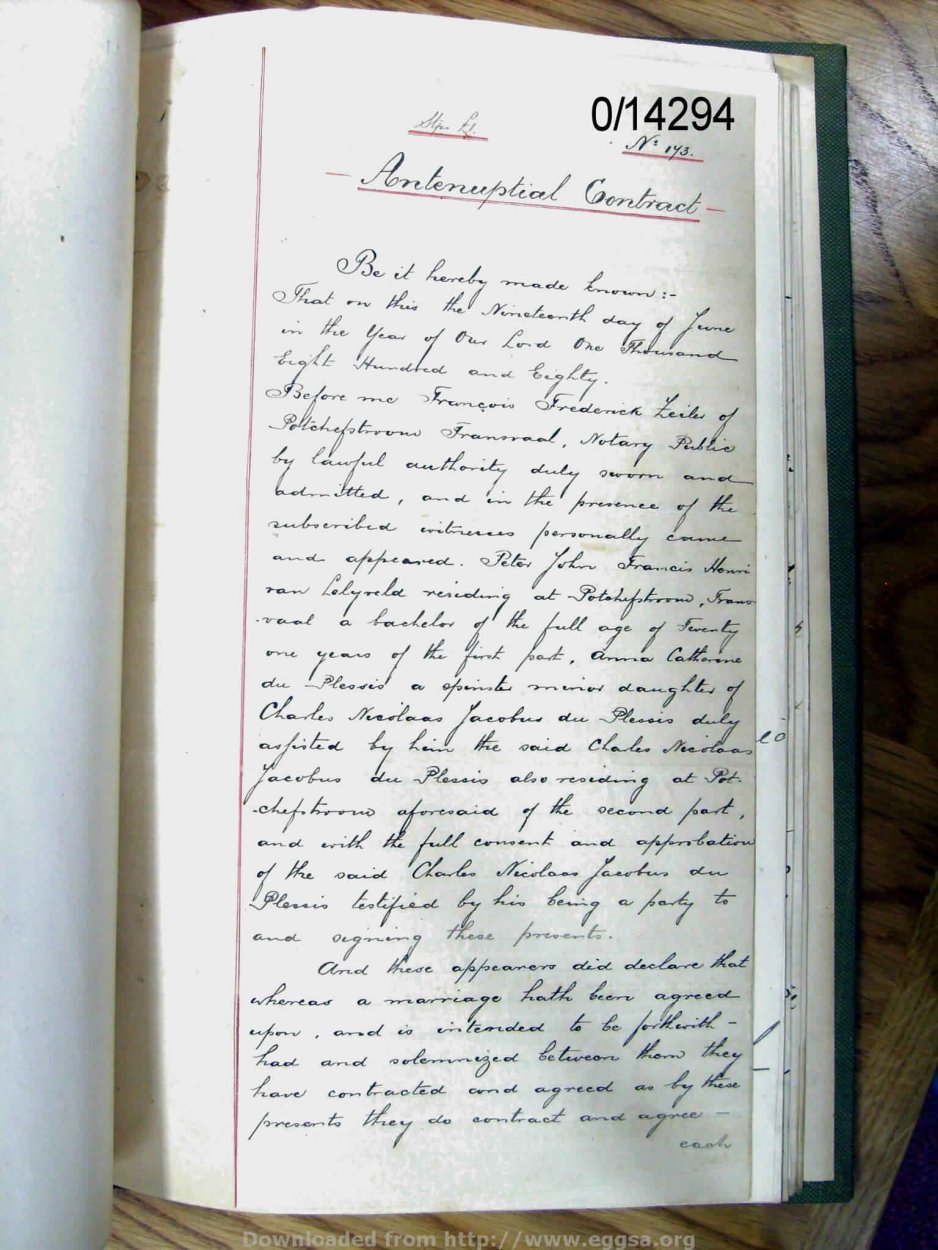 0/14294
Nº 143.
Antenuptial Contract
Be it hereby made known:-
That on this the Nineteenth day of June
in the Year of Our Lord One Thousand
Eight Hundred and Eighty.
Before me François Frederick Zeiler of
Potchefstroom Transvaal, Notary Public
by lawful authority duly sworn and
admitted, and in the presence of the
subscribed witnesses personally came
and appeared. Peter John Francis Henri
van Lelyveld residing at Potchefstroom, Trans
-vaal a bachelor of the full age of Twenty
one years of the first part, Anna Catherine
du Plessis a spinster minor daughter of
Charles Nicolaas Jacobus du Plessis duly
assisted by him the said Charles Nicolaas
Jacobus du Plessis also residing at Pot-
-chefstroom aforesaid of the second part,
and with the full consent and approbation
of the said Charles Nicolaas Jacobus du
Plessis testified by his being a party to
and signing these presents.
And these appearers did declare that
whereas a marriage hath been agreed
upon, and is intended to be forthwith -
had and solemnized between them they
have contracted and agreed as by these
presents they do contract and agree -
each
Downloaded from http://www.eggsa.org